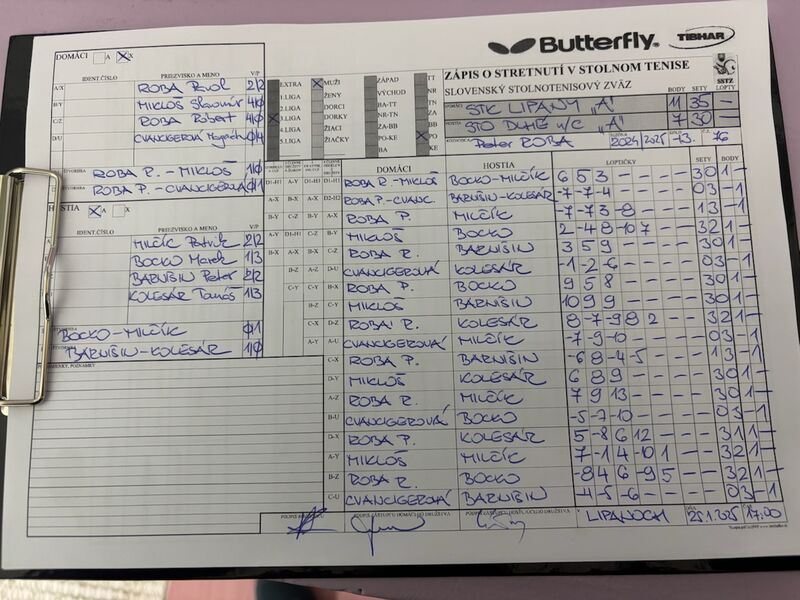 Butterfly® TIBHAR
ZÁPIS O STRETNUTÍ V STOLNOM TENISE
SLOVENSKÝ STOLNOTENISOVÝ ZVÄZ SSTZ
DOMÁCI A X
IDENT.ČÍSLO PRIEZVISKO A MENO V/P
A/X ROBA Pavol 2/2
B/Y MIKLOŠ Slavomír 4/0
C/Z ROBA Robert 4/0
D/U CVANCIGEROVÁ 0/4
ŠTVORHRA ROBA P. - MIKLOŠ 1/0
ROBA P. - CVANCIGEROVÁ 0/1
HOSTIA A X
IDENT.ČÍSLO PRIEZVISKO A MENO V/P
MILČÍK Patrik 2/2
BOCKO Marek 1/3
BARNIŠIN Peter 2/2
KOLESÁR Tomáš 1/3
BOCKO - MILČÍK 0/1
BARNIŠIN - KOLESÁR 1/0
EXTRA MUŽI ZÁPAD TT
1.LIGA ŽENY VÝCHOD NR
2.LIGA DORCI BA-TT TN
3.LIGA DORKY TN-NR ZA
4.LIGA ŽIACI ZA-BB BB
5.LIGA ŽIAČKY PO-KE PO
BA KE
BODY SETY LOPTY
DOMÁCI STK LIPANY "A" 11 35 -
HOSTIA STO DLHÉ n/C "A" 7 30 -
Peter ROBA 2024/2025 13. 76
DOMÁCI HOSTIA LOPTIČKY SETY BODY
ROBA P. - MIKLOŠ BOCKO - MILČÍK 6 5 3 - - - - 3 0 1 -
ROBA P. - CVANC. BARNIŠIN - KOLESÁR -7 -7 -4 - - - - 0 3 - 1
ROBA P. MILČÍK -7 -7 3 -8 - - - 1 3 - 1
MIKLOŠ BOCKO 2 -4 8 -10 7 - - 3 2 1 -
ROBA R. BARNIŠIN 3 5 9 - - - - 3 0 1 -
CVANCIGEROVÁ KOLESÁR -1 -2 -6 - - - - 0 3 - 1
ROBA P. BOCKO 9 5 8 - - - - 3 0 1 -
MIKLOŠ BARNIŠIN 10 9 9 - - - - 3 0 1 -
ROBA R. KOLESÁR 8 -7 -9 8 2 - - 3 2 1 -
CVANCIGEROVÁ MILČÍK -7 -9 -10 - - - - 0 3 - 1
ROBA P. BARNIŠIN -6 8 -4 -5 - - - 1 3 - 1
MIKLOŠ KOLESÁR 6 8 9 - - - - 3 0 1 -
ROBA R. MILČÍK 7 9 13 - - - - 3 0 1 -
CVANCIGEROVÁ BOCKO -5 -7 -10 - - - - 0 3 - 1
ROBA P. KOLESÁR 5 -8 6 12 - - - 3 1 1 -
MIKLOŠ MILČÍK 7 -1 4 -10 1 - - 3 2 1 -
ROBA R. BOCKO -8 4 6 -9 5 - - 3 2 1 -
CVANCIGEROVÁ BARNIŠIN -4 -5 -6 - - - - 0 3 - 1
V LIPANOCH 25.1.2025 17:00